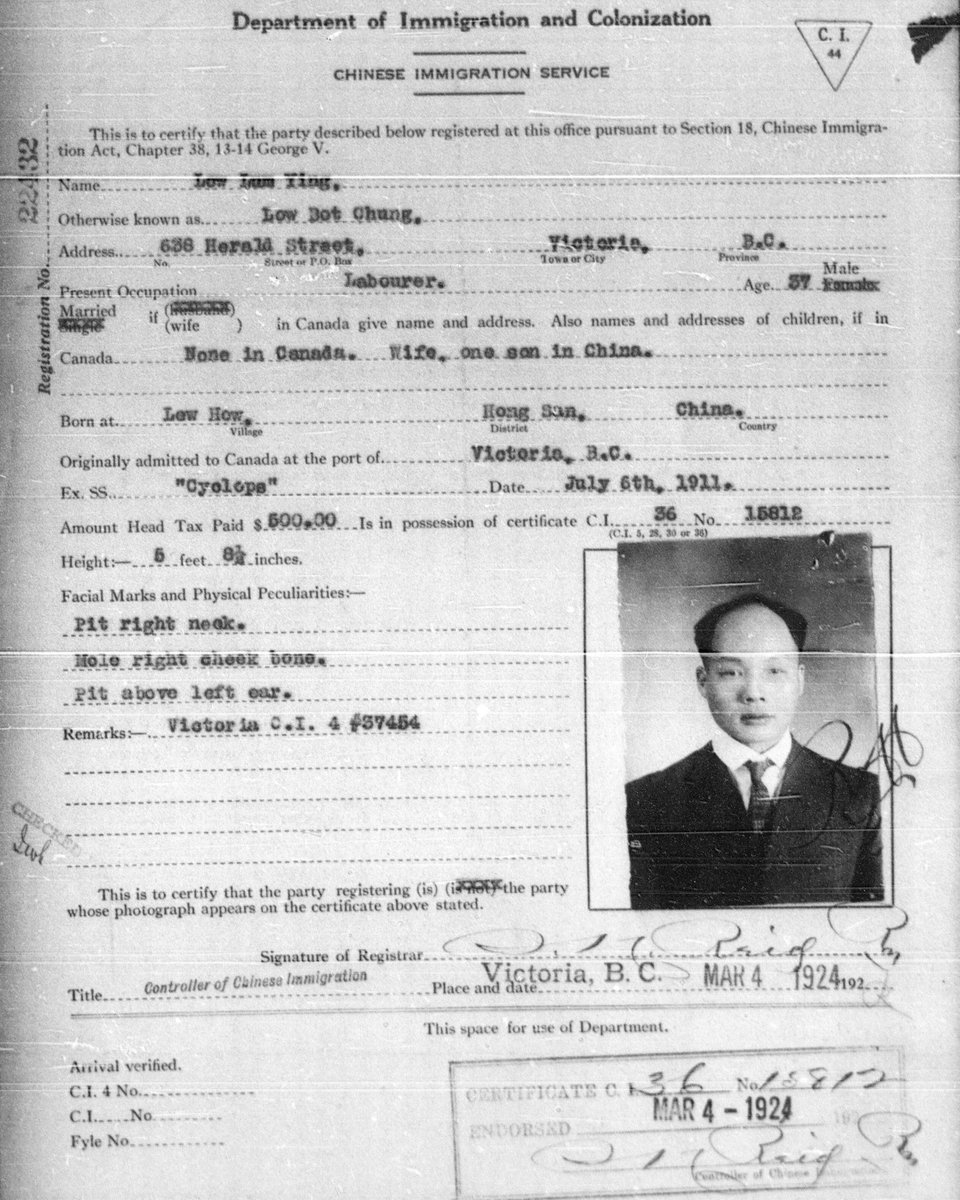 Department of Immigration and Colonization
C. I.
44
CHINESE IMMIGRATION SERVICE
This is to certify that the party described below registered at this office pursuant to Section 18, Chinese Immigra-
tion Act, Chapter 38, 13-14 George V.
Registration No. 22432
Name Low Lum Ying.
Otherwise known as Low Dot Chung.
Address 638 Herald Street, Victoria, B.C.
No. Street or P.O. Box Town or City Province
Present Occupation Labourer. Age 37 Male Female
Married
Single if (husband)
(wife ) in Canada give name and address. Also names and addresses of children, if in
Canada None in Canada. Wife, one son in China.
Born at Low How, Hong San, China.
Village District Country
Originally admitted to Canada at the port of Victoria, B.C.
Ex. SS. "Cyclops" Date July 6th, 1911.
Amount Head Tax Paid $ 500.00 Is in possession of certificate C.I. 36 No. 15812
(C.I. 5, 28, 30 or 36)
Height:— 5 feet 8½ inches.
Facial Marks and Physical Peculiarities:—
Pit right neck.
Mole right cheek bone.
Pit above left ear.
Remarks:— Victoria C.I. 4 #37454
CHECKED
This is to certify that the party registering (is) (is not) the party
whose photograph appears on the certificate above stated.
Signature of Registrar Reid
Title Controller of Chinese Immigration Place and date Victoria, B. C. MAR 4 1924 192
This space for use of Department.
Arrival verified.
C.I. 4 No.
C.I. No.
Fyle No.
CERTIFICATE C. I. 36 No 15812
MAR 4 - 1924 192
ENDORSED
Reid
Controller of Chinese Immigration